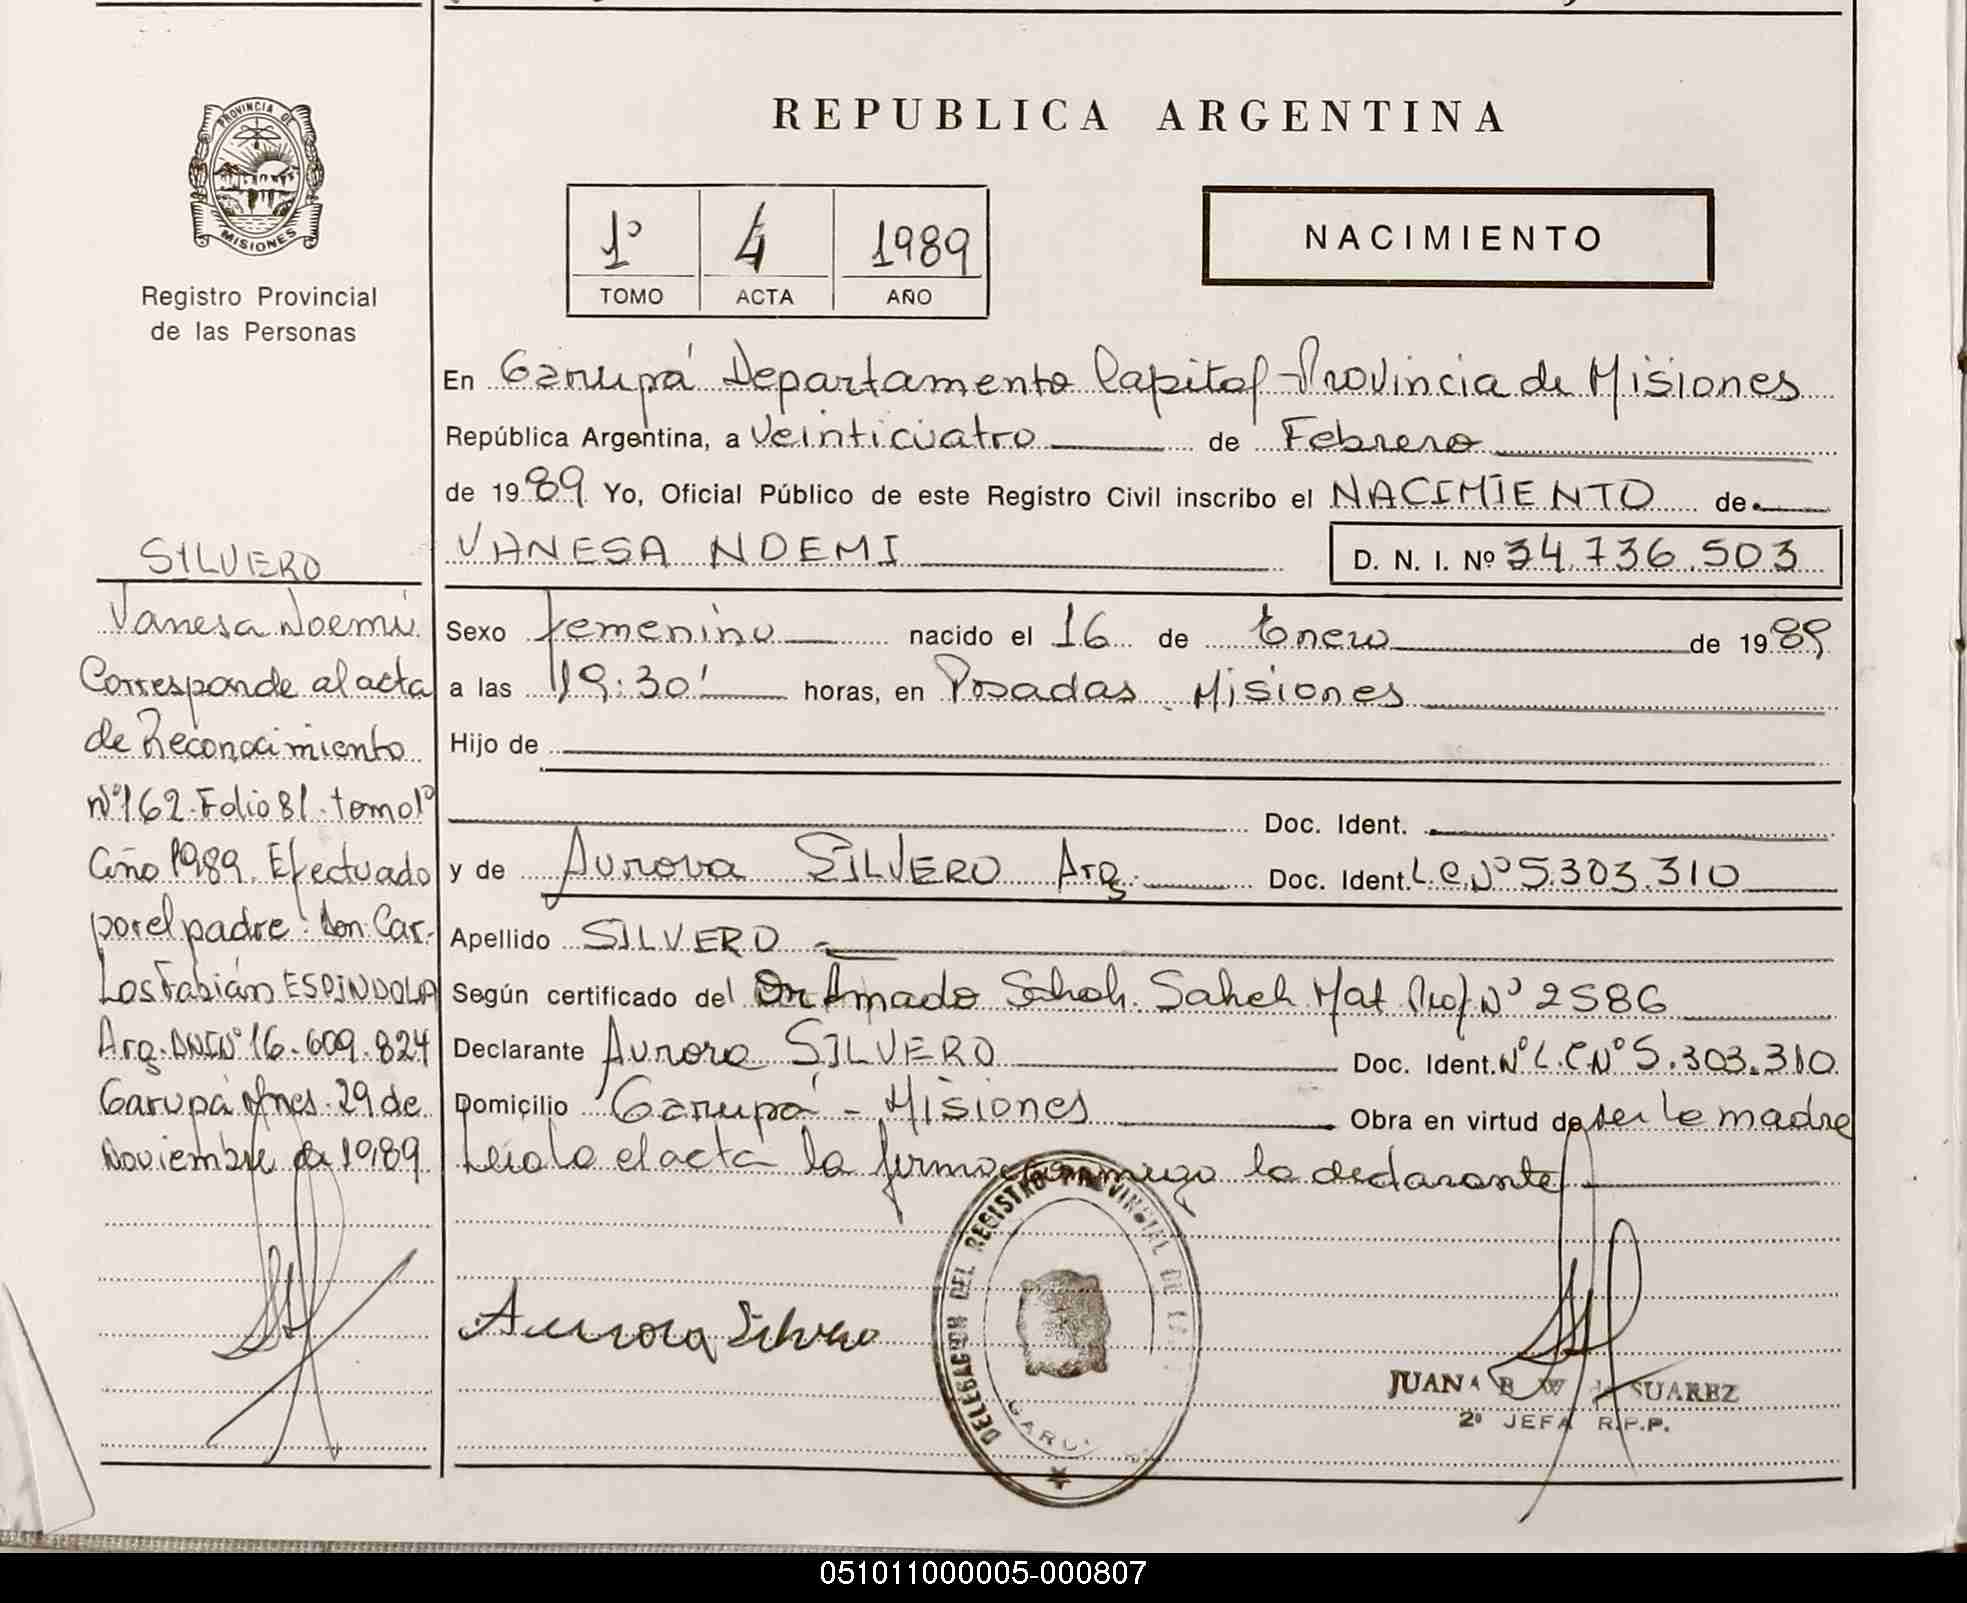 PROVINCIA DE
MISIONES
Registro Provincial
de las Personas
REPUBLICA ARGENTINA
1º 4 1989
TOMO ACTA AÑO
NACIMIENTO
En Garupá Departamento Capital - Provincia de Misiones
República Argentina, a Veinticuatro de Febrero
de 1989 Yo, Oficial Público de este Registro Civil inscribo el NACIMIENTO de
VANESA NOEMI
D. N. I. Nº 34.736.503
Sexo femenino nacido el 16 de Enero de 1989
a las 19:30' horas, en Posadas Misiones
Hijo de
Doc. Ident.
y de Aurora SILVERO Arg. Doc. Ident. L.C. Nº 5.303.310
Apellido SILVERO
Según certificado del Dr Amado Saheh Mat Prof Nº 2586
Declarante Aurora SILVERO Doc. Ident. Nº L.C Nº 5.303.310
Domicilio Garupá - Misiones Obra en virtud de ser la madre
Leida el acta la firma conmigo la declarante
SILVERO
Vanesa Noemi
Corresponde al acta
de Reconocimiento
Nº 162. Folio 81. tomo 1º
año 1989. Efectuado
por el padre: Don Car-
los Fabián ESPINDOLA
Arg. DNI Nº 16.609.824
Garupá Mnes. 29 de
Noviembre de 1989
Aurora Silvero
DELEGACION DEL REGISTRO PROVINCIAL DE
JUANA B W SUAREZ
2º JEFA R.P.P.
051011000005-000807